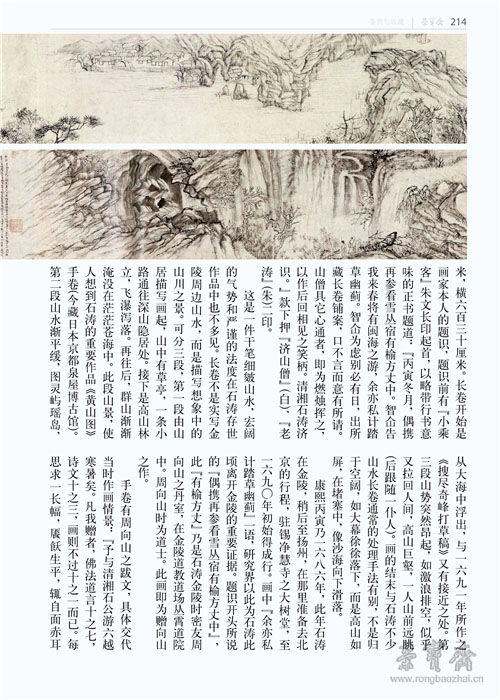 荣宝斋
214
米，横六百三十厘米。长卷开始是
画家本人的题识，题识前有『小乘
客』朱文长印起首，以略带行书意
味的正书题道：『丙寅冬月，偶携
再参看雪丛宿有榆方丈中。智佥告
我来春将有闽海之游，余亦私计踏
草幽蓟。智佥为虑别必有日，出所
藏长卷铺案，口不言而意有所请。
山僧具它心通者，即为燃烛挥之，
以作后回相见之笑柄。清湘石涛济
识。』款下押『济山僧』（白）、『老
涛』（朱）二印。
这是一件干笔细皴山水，宏阔
的气势和严谨的法度在石涛存世
作品中也不多见。长卷不是实写金
陵周边山水，而是描写想象中的
山川之景。可分三段，第一段由山
居描写画起，山中有草亭，一条小
路通往深山隐居处。接下是高山林
立，飞瀑泻落。再往后，群山渐渐
淹没在茫茫苍海中。此段山景，使
人想到石涛的重要作品《黄山图》
手卷（今藏日本京都泉屋博古馆）。
第二段山水渐平缓，图灵屿瑶岛，
从大海中浮出，与一六九一年所作之
《搜尽奇峰打草稿》又有接近之处。第
三段山势突然昂起，如激浪排空，似乎
又拉回人间，高山巨壑，一人山前远眺
（后跟随一仆人）。画的结末与石涛不少
山水长卷通常的处理手法有别，不是归
于空阔，如大幕徐徐落下，而是高山如
屏，在堵塞中，像沙海向下滑落。
康熙丙寅乃一六八六年，此年石涛
在金陵，稍后至扬州，在那里准备去北
京的行程，驻锡净慧寺之大树堂，至
一六九〇年初始得成行。画中『余亦私
计踏草幽蓟』一语，研究界以此为石涛此
顷离开金陵的重要证据。题识开头所说
的『偶携再参看雪丛宿有榆方丈中』，
此『有榆方丈』乃是石涛金陵时密友周
向山之丹室，在金陵道教道场丛霄道院
中。周向山时为道士。此画即为赠向山
之作。
手卷有周向山之跋文，具体交代
当时作画情景：『予与清湘石公游六越
寒暑矣。凡我赠者，佛法道言十之七，
诗文十之三，画则不过十之一而已。每
思求一长幅，餍饫生平，辄自面赤耳
荣宝斋
www.rongbaozhai.cn